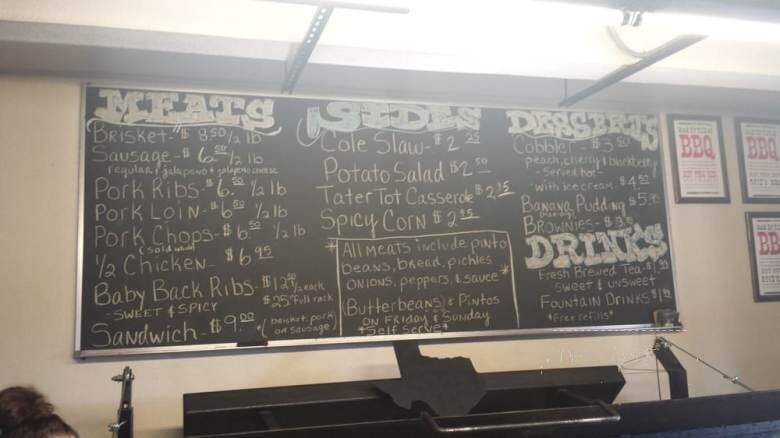 MEATS
BRISKET- $ 8.50 1/2 lb
SAUSAGE- $ 6.50 1/2 lb
regular & jalapeno & jalapeno cheese
PORK RIBS- $ 6.50 1/2 lb
PORK LOIN- $ 6.50 1/2 lb
PORK CHOPS- $ 6.50 1/2 lb
1/2 CHICKEN- $ 6.95
BABY BACK RIBS- 1/2 rack
- SWEET & SPICY $25 Full rack
SANDWICH- $ 9.00 (brisket, pork
or sausage)
SIDES
COLE SLAW- $ 2
POTATO SALAD $2.50
TATER TOT CASSEROLE $2
SPICY CORN $ 2
* ALL MEATS INCLUDE PINTO
BEANS, BREAD, PICKLES
ONIONS, PEPPERS, & SAUCE *
(BUTTERBEANS) & PINTOS
ON FRIDAY & SUNDAY
*SELF SERVE*
DESSERTS
COBBLER- $3.50
peach, cherry & blackberry
- served hot -
- with ice cream- $4.50
BANANA PUDDING $5
BROWNIES- $ 3
DRINKS
FRESH BREWED TEA- $1.99
SWEET & UNSWEET
FOUNTAIN DRINKS $1.99
*Free refills*
BBQ
BBQ
BB
BB